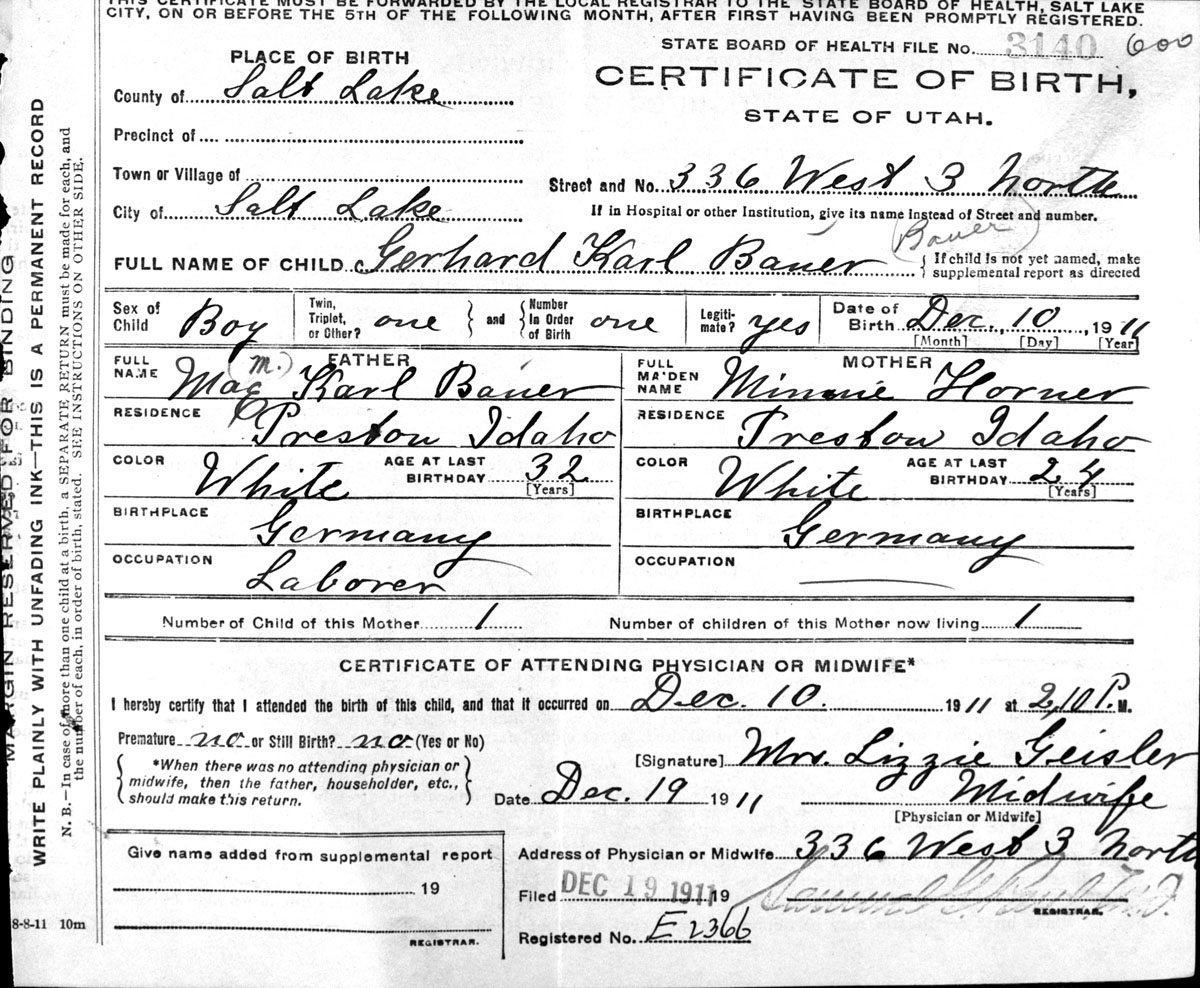 THIS CERTIFICATE MUST BE FORWARDED BY THE LOCAL REGISTRAR TO THE STATE BOARD OF HEALTH, SALT LAKE
CITY, ON OR BEFORE THE 5TH OF THE FOLLOWING MONTH, AFTER FIRST HAVING BEEN PROMPTLY REGISTERED.
STATE BOARD OF HEALTH FILE No. 3140 600
PLACE OF BIRTH
CERTIFICATE OF BIRTH,
STATE OF UTAH.
County of Salt Lake
Precinct of
Town or Village of
Street and No. 336 West 3 North
City of Salt Lake
If in Hospital or other Institution, give its name instead of Street and number.
(Bauer)
FULL NAME OF CHILD Gerhard Karl Bauer { If child is not yet named, make
supplemental report as directed
Sex of Child Boy
Twin, Triplet, or Other? one } and { Number In Order of Birth one
Legiti-mate? yes
Date of Birth Dec. 10, 1911
[Month] [Day] [Year]
FATHER
FULL NAME (M.) Karl Bauer
RESIDENCE Preston Idaho
COLOR White AGE AT LAST BIRTHDAY 32 [Years]
BIRTHPLACE Germany
OCCUPATION Laborer
MOTHER
FULL MAIDEN NAME Minnie Horner
RESIDENCE Preston Idaho
COLOR White AGE AT LAST BIRTHDAY 24 [Years]
BIRTHPLACE Germany
OCCUPATION
Number of Child of this Mother 1 Number of children of this Mother now living 1
CERTIFICATE OF ATTENDING PHYSICIAN OR MIDWIFE*
I hereby certify that I attended the birth of this child, and that it occurred on Dec. 10. 1911 at 2,10 P. M.
Premature no or Still Birth? no (Yes or No)
*When there was no attending physician or
midwife, then the father, householder, etc.,
should make this return.
[Signature] Mrs. Lizzie Geisler
Date Dec. 19 1911 Midwife
[Physician or Midwife]
Give name added from supplemental report
19
REGISTRAR.
Address of Physician or Midwife 336 West 3 North
Filed DEC 19 1911 19
REGISTRAR.
Registered No. E2366
8-8-11 10m
MARGIN RESERVED FOR BINDING
WRITE PLAINLY WITH UNFADING INK—THIS IS A PERMANENT RECORD
N. B.—In case of more than one child at a birth, a SEPARATE RETURN must be made for each, and
the number of each, in order of birth, stated. SEE INSTRUCTIONS ON OTHER SIDE.